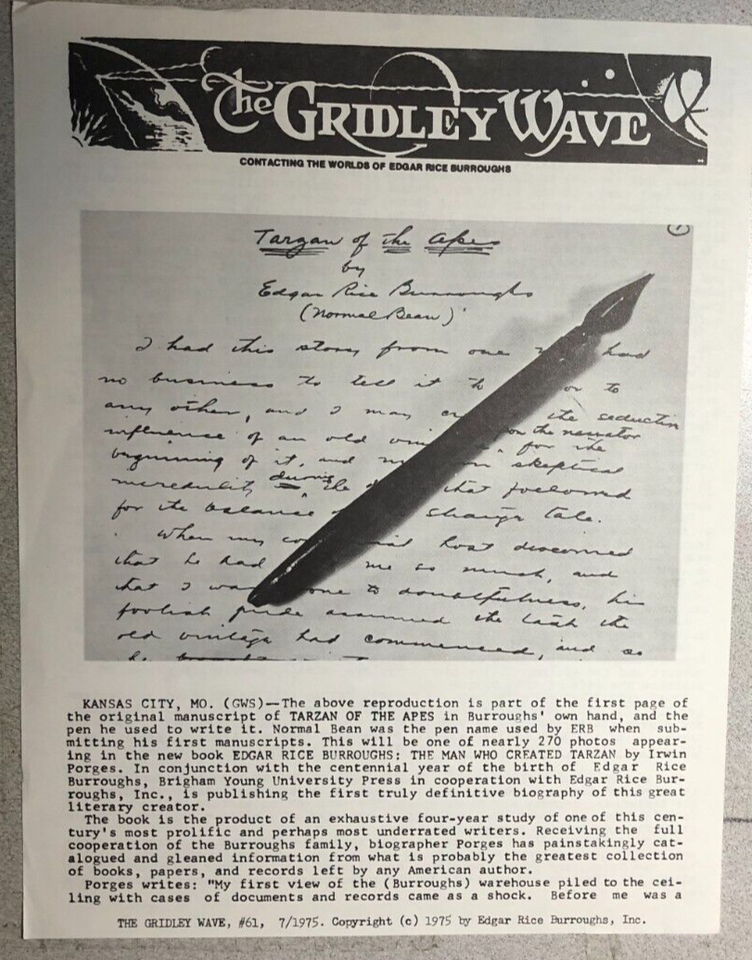 The GRIDLEY WAVE
CONTACTING THE WORLDS OF EDGAR RICE BURROUGHS
1
Tarzan of the Apes
by
Edgar Rice Burroughs
(Normal Bean)
I had this story from one had
no business to tell it or to
any other, and I may the seductive
influence of an old on the narrator
for the
beginning of it, and skeptical
incredulity during the that followed
for the balance strange tale.
When my host discovered
that he had me so much, and
that I was to doubtfulness, his
foolish pride assumed the task the
old vintage had commenced, and so
he
KANSAS CITY, MO. (GWS)—The above reproduction is part of the first page of
the original manuscript of TARZAN OF THE APES in Burroughs' own hand, and the
pen he used to write it. Normal Bean was the pen name used by ERB when sub-
mitting his first manuscripts. This will be one of nearly 270 photos appear-
ing in the new book EDGAR RICE BURROUGHS: THE MAN WHO CREATED TARZAN by Irwin
Porges. In conjunction with the centennial year of the birth of Edgar Rice
Burroughs, Brigham Young University Press in cooperation with Edgar Rice Bur-
roughs, Inc., is publishing the first truly definitive biography of this great
literary creator.
The book is the product of an exhaustive four-year study of one of this cen-
tury's most prolific and perhaps most underrated writers. Receiving the full
cooperation of the Burroughs family, biographer Porges has painstakingly cat-
alogued and gleaned information from what is probably the greatest collection
of books, papers, and records left by any American author.
Porges writes: "My first view of the (Burroughs) warehouse piled to the cei-
ling with cases of documents and records came as a shock. Before me was a
THE GRIDLEY WAVE, #61, 7/1975. Copyright (c) 1975 by Edgar Rice Burroughs, Inc.